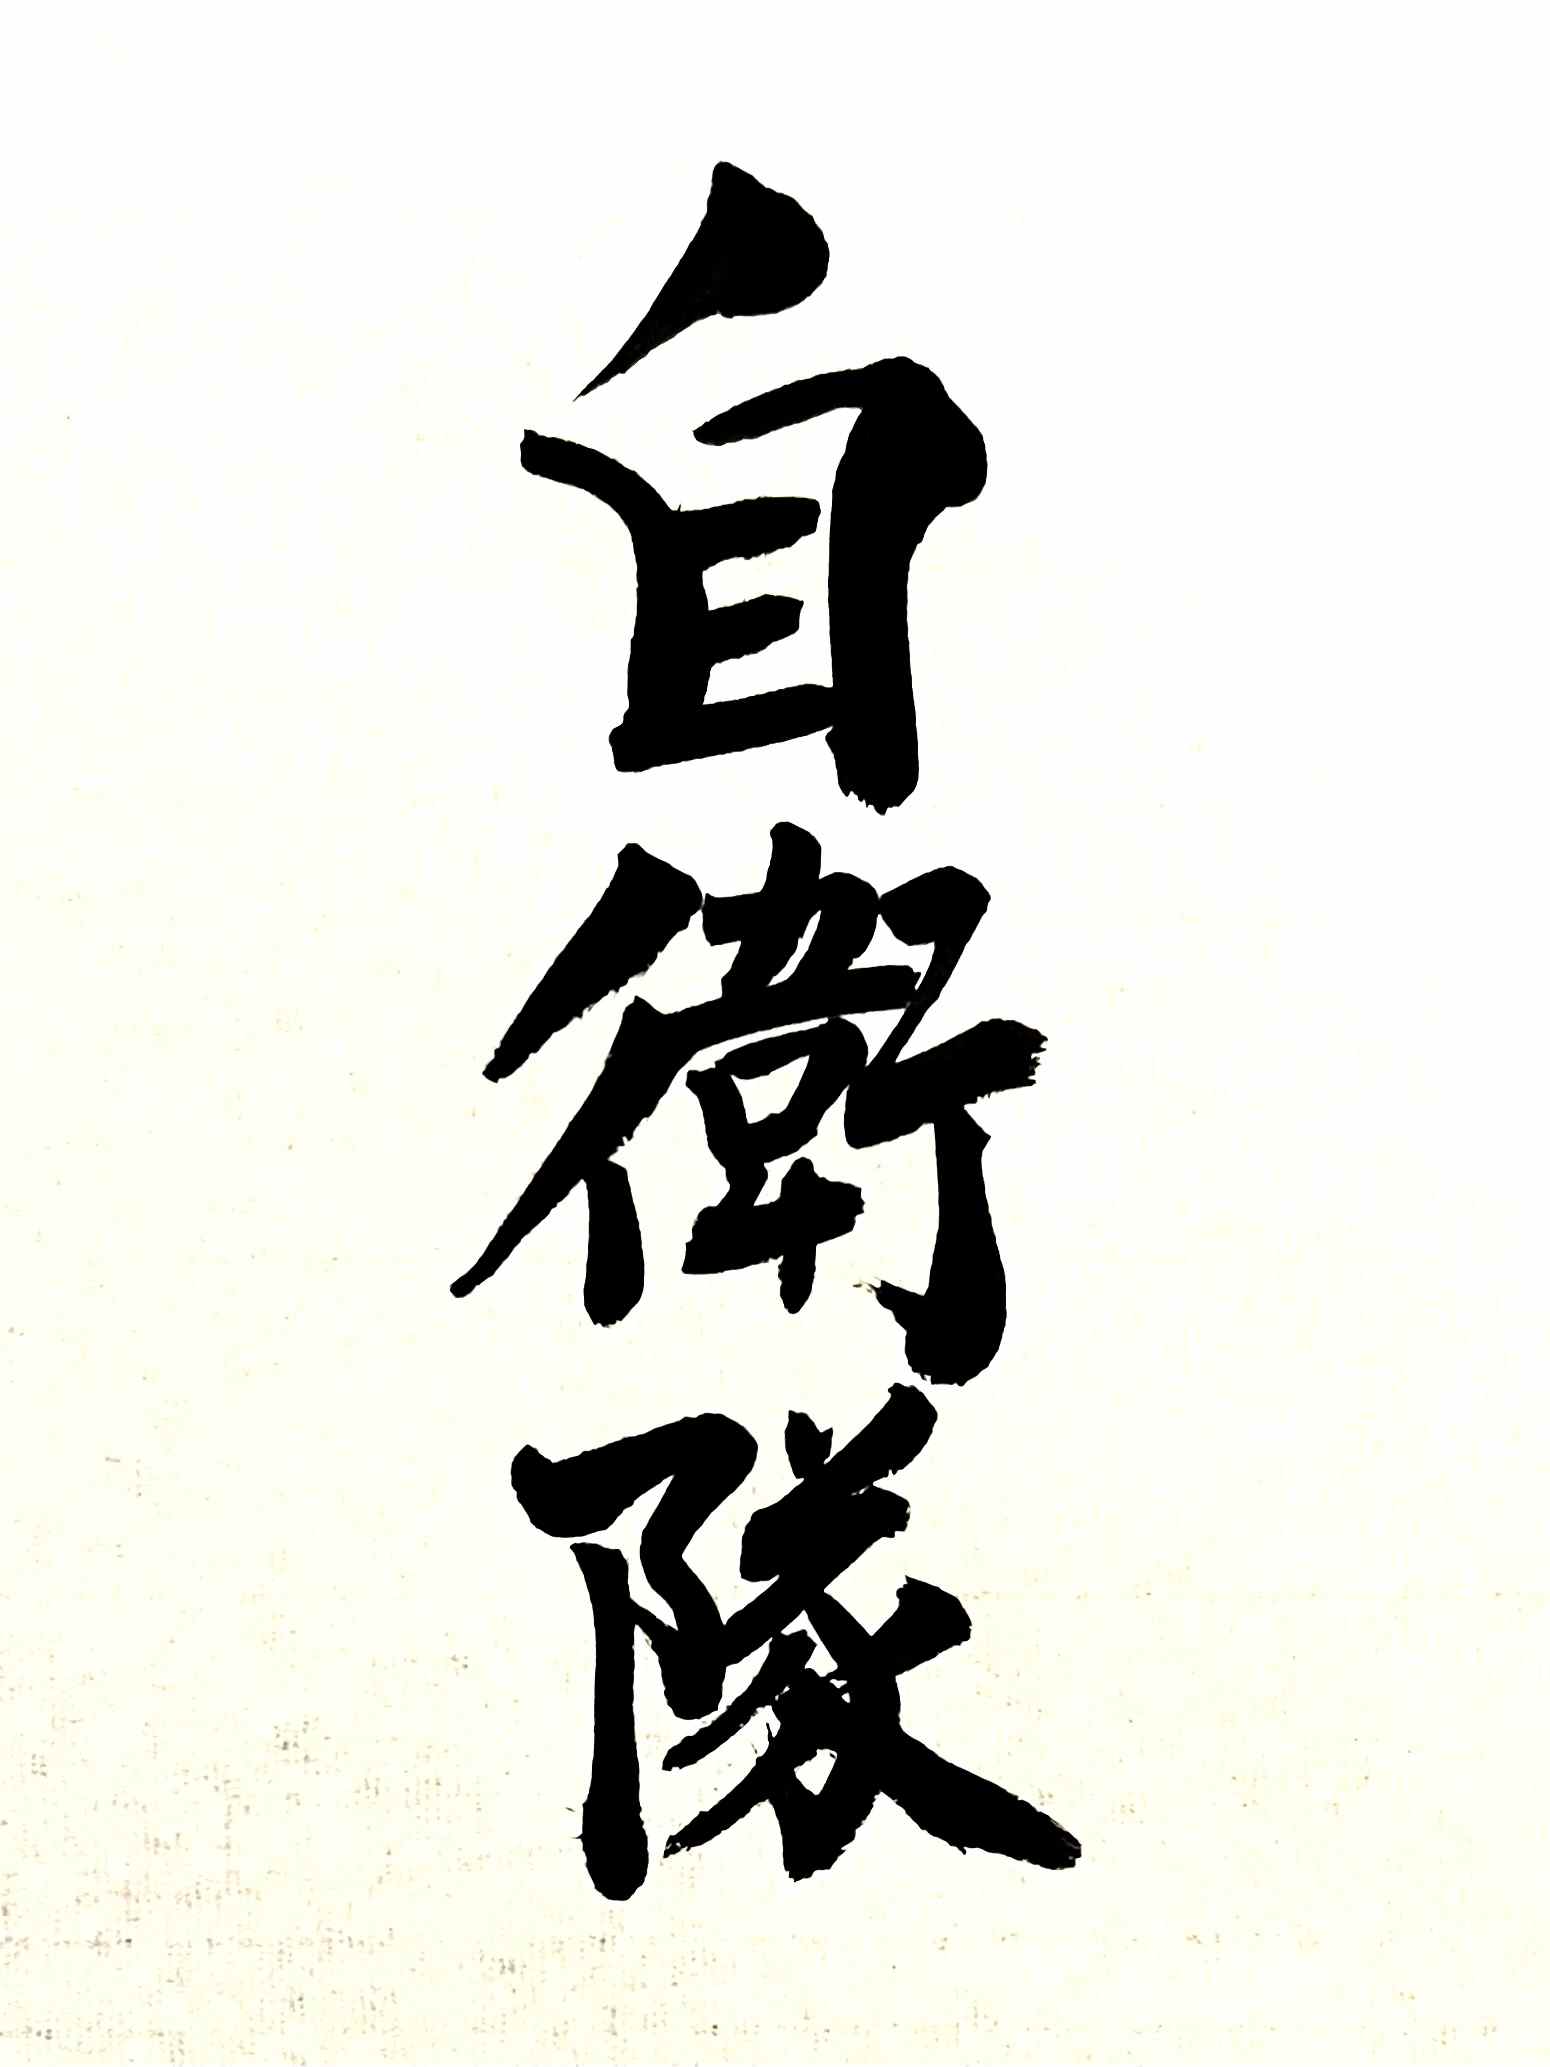 自衛隊